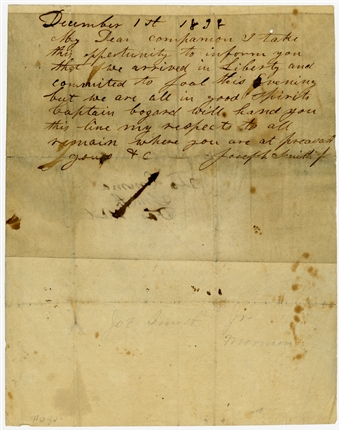 December 1st 1838
My Dear companion I take
this oppertunity to inform you
that we arrived in Liberty and
committed to Joal this Evening
but we are all in good spirits
Captain bogard will hand you
this line my respects to all
remain where you are at preasant
yours &C Joseph Smith Jr